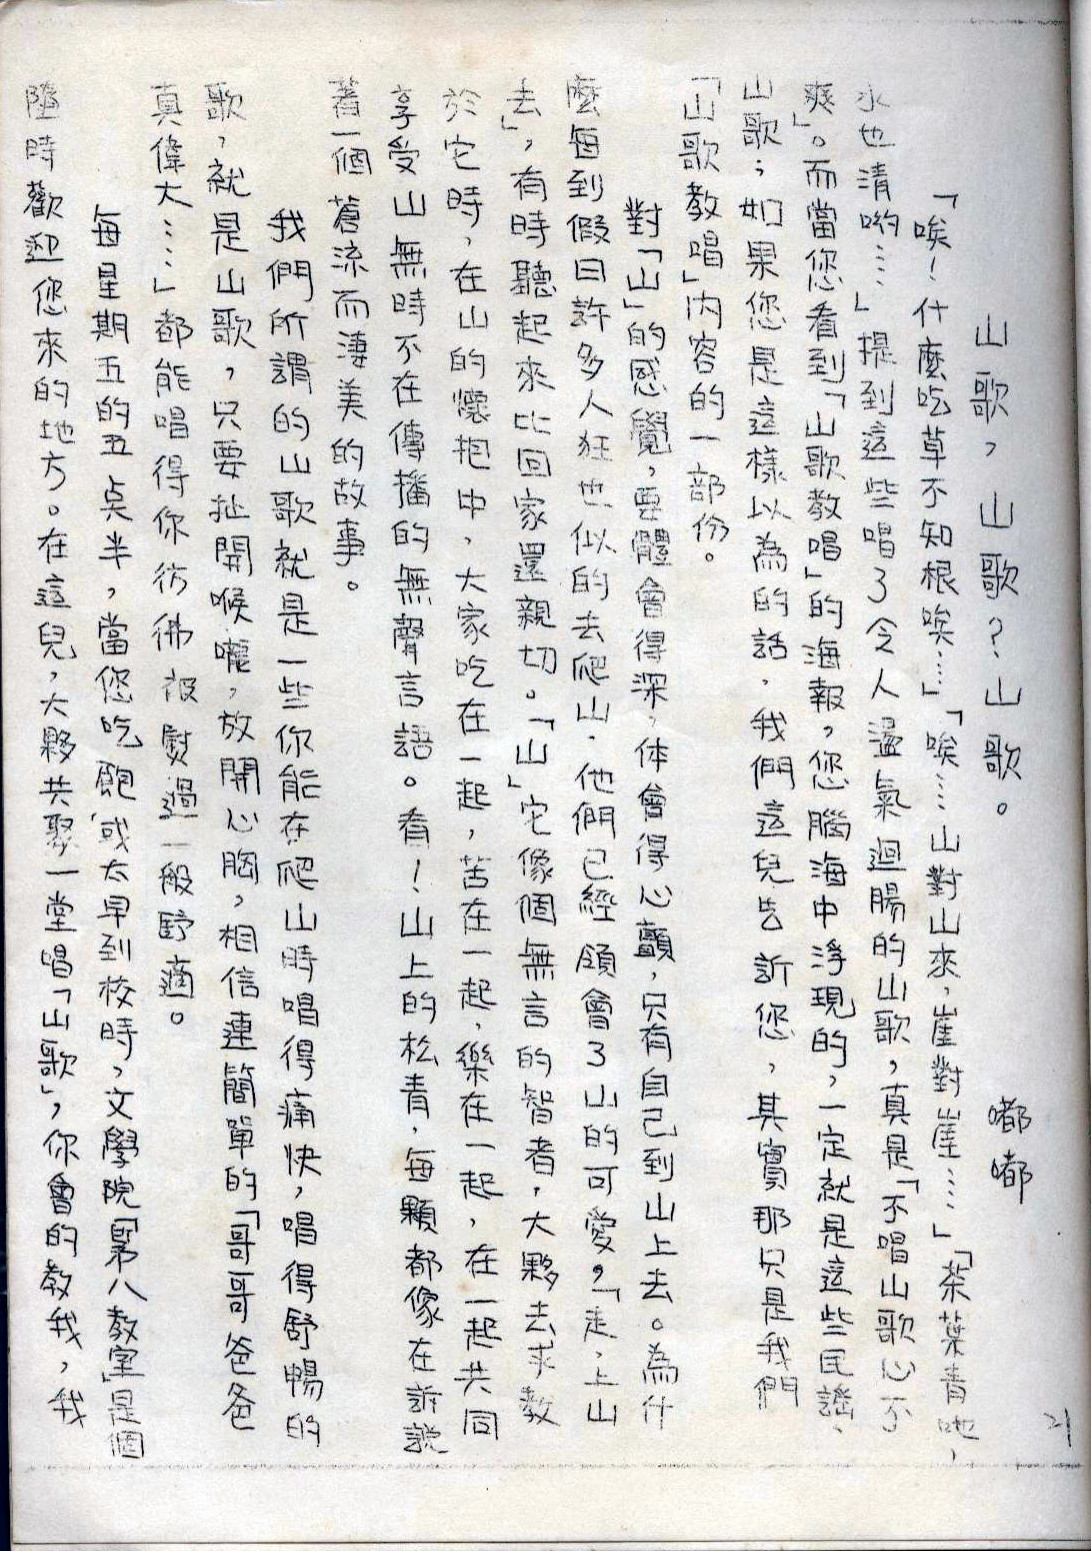 山歌，山歌？山歌。
嘟嘟
「唉！什麼吃草不知根唉……」「唉……山對山來，崖對崖……」「茶葉青吔，
水也清喲……」提到這些唱了令人盪氣迴腸的山歌，真是「不唱山歌心不
爽」。而當您看到「山歌教唱」的海報，您腦海中浮現的，一定就是這些民謠、
山歌；如果您是這樣以為的話，我們這兒告訴您，其實那只是我們
「山歌教唱」內容的一部份。
對「山」的感覺，要體會得深，体會得心顫，只有自己到山上去。為什
麼每到假日許多人狂也似的去爬山，他們已經領會了山的可愛。「走，上山
去」，有時聽起來比回家還親切。「山」它像個無言的智者，大夥去求教
於它時，在山的懷抱中，大家吃在一起，苦在一起，樂在一起，在一起共同
享受山無時不在傳播的無聲言語。看！山上的松青，每顆都像在訴說
著一個蒼流而淒美的故事。
我們所謂的山歌就是一些你能在爬山時唱得痛快，唱得舒暢的
歌，就是山歌，只要扯開喉嚨，放開心胸，相信連簡單的「哥哥爸爸
真偉大……」都能唱得你彷彿被熨過一般舒適。
每星期五的五點半，當您吃飽，或太早到校時，文學院「第八教室」是個
隨時歡迎您來的地方。在這兒，大夥共聚一堂唱「山歌」，你會的教我，我
21